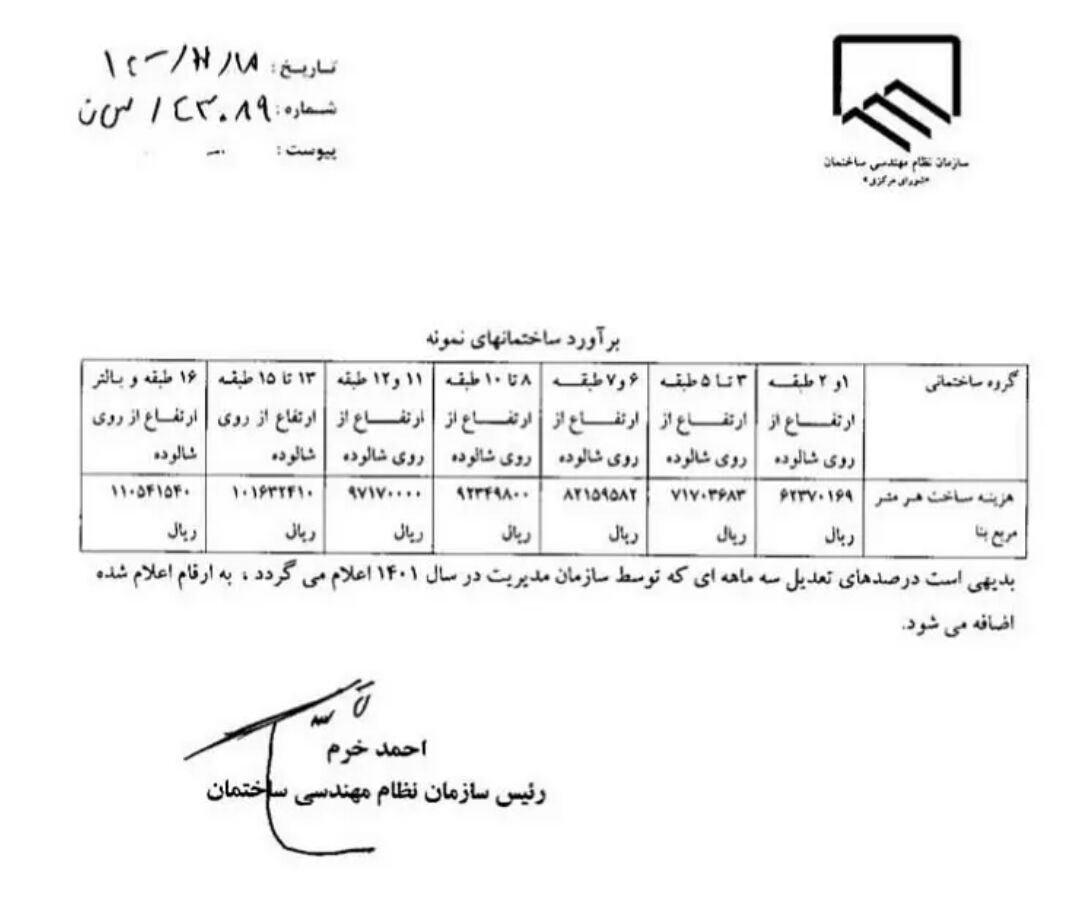 تاریخ: ۱۴۰۰/۱۲/۱۸
شماره: ۱۴۳۰۸۹/ش ن
پیوست:
سازمان نظام مهندسی ساختمان
«شورای مرکزی»
برآورد ساختمانهای نمونه
گروه ساختمانی | ۱و ۲ طبقه ارتفاع از روی شالوده | ۳ تا ۵ طبقه ارتفاع از روی شالوده | ۶ و۷ طبقه ارتفاع از روی شالوده | ۸ تا ۱۰ طبقه ارتفاع از روی شالوده | ۱۱ و۱۲ طبقه ارتفاع از روی شالوده | ۱۳ تا ۱۵ طبقه ارتفاع از روی شالوده | ۱۶ طبقه و بالتر ارتفاع از روی شالوده
هزینه ساخت هر متر مربع بنا | ۶۲۳۷۰۱۶۹ ریال | ۷۱۷۰۳۶۸۳ ریال | ۸۲۱۵۹۵۸۲ ریال | ۹۲۳۴۹۸۰۰ ریال | ۹۷۱۷۰۰۰۰ ریال | ۱۰۱۶۳۲۴۱۰ ریال | ۱۱۰۵۴۱۵۴۰ ریال
بدیهی است درصدهای تعدیل سه ماهه ای که توسط سازمان مدیریت در سال ۱۴۰۱ اعلام می گردد ، به ارقام اعلام شده
اضافه می شود.
احمد خرم
رئیس سازمان نظام مهندسی ساختمان